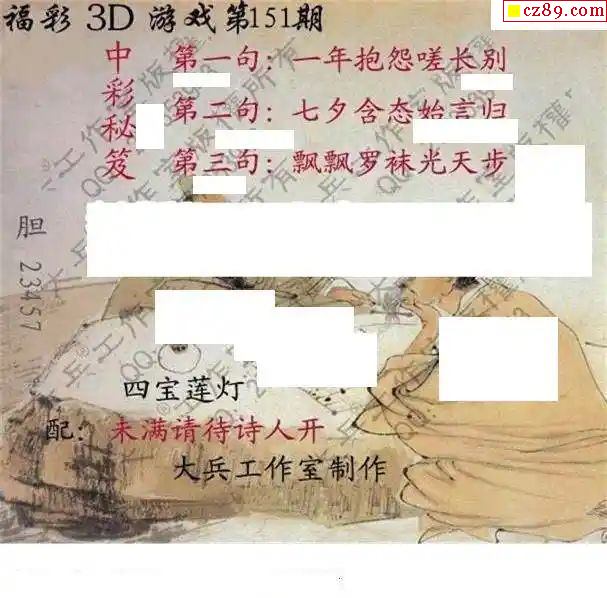 福彩 3D 游戏第151期
cz89.com
中彩秘笈
第一句：一年抱怨嗟长别
第二句：七夕含态始言归
第三句：飘飘罗袜光天步
胆 23457
四宝莲灯
配：未满请待诗人开
大兵工作室制作